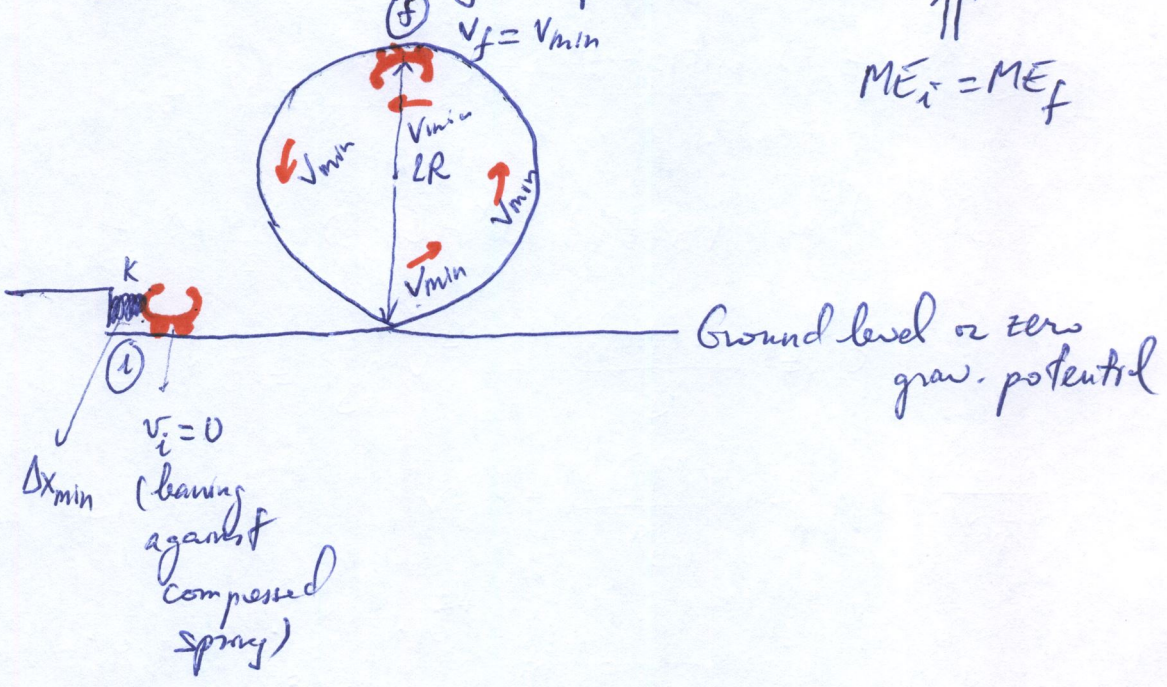 f
v_f = v_min
ME_i = ME_f
v_min
v_min
2R
v_min
v_min
K
Ground level or zero
grav. potential
i
v_i = 0
Δx_min
(leaning
against
compressed
spring)